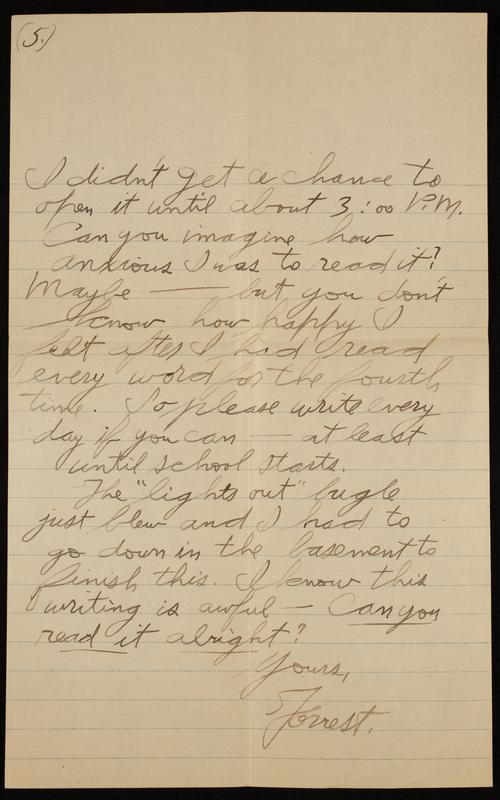 (5.)
I didn't get a chance to
open it until about 3:00 P.M.
Can you imagine how
anxious I was to read it?
Maybe — but you don't
know how happy I
felt after I had read
every word for the fourth
time. So please write every
day if you can — at least
until school starts.
The "lights out" bugle
just blew and I had to
go down in the basement to
finish this. I know this
writing is awful — Can you
read it alright?
Yours,
Forrest.